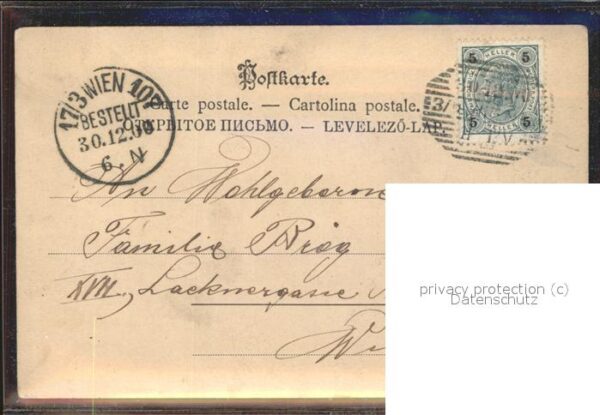 Postkarte.
Carte postale. — Cartolina postale.
ОТКРЫТОЕ ПИСЬМО. — LEVELEZŐ-LAP.
17/3 WIEN 10
BESTELLT
30.12.
6. N
5 5
HELLER
5 5
3/
An Wohlgeboren
Familie
XVII., Lacknergasse
privacy protection (c)
Datenschutz